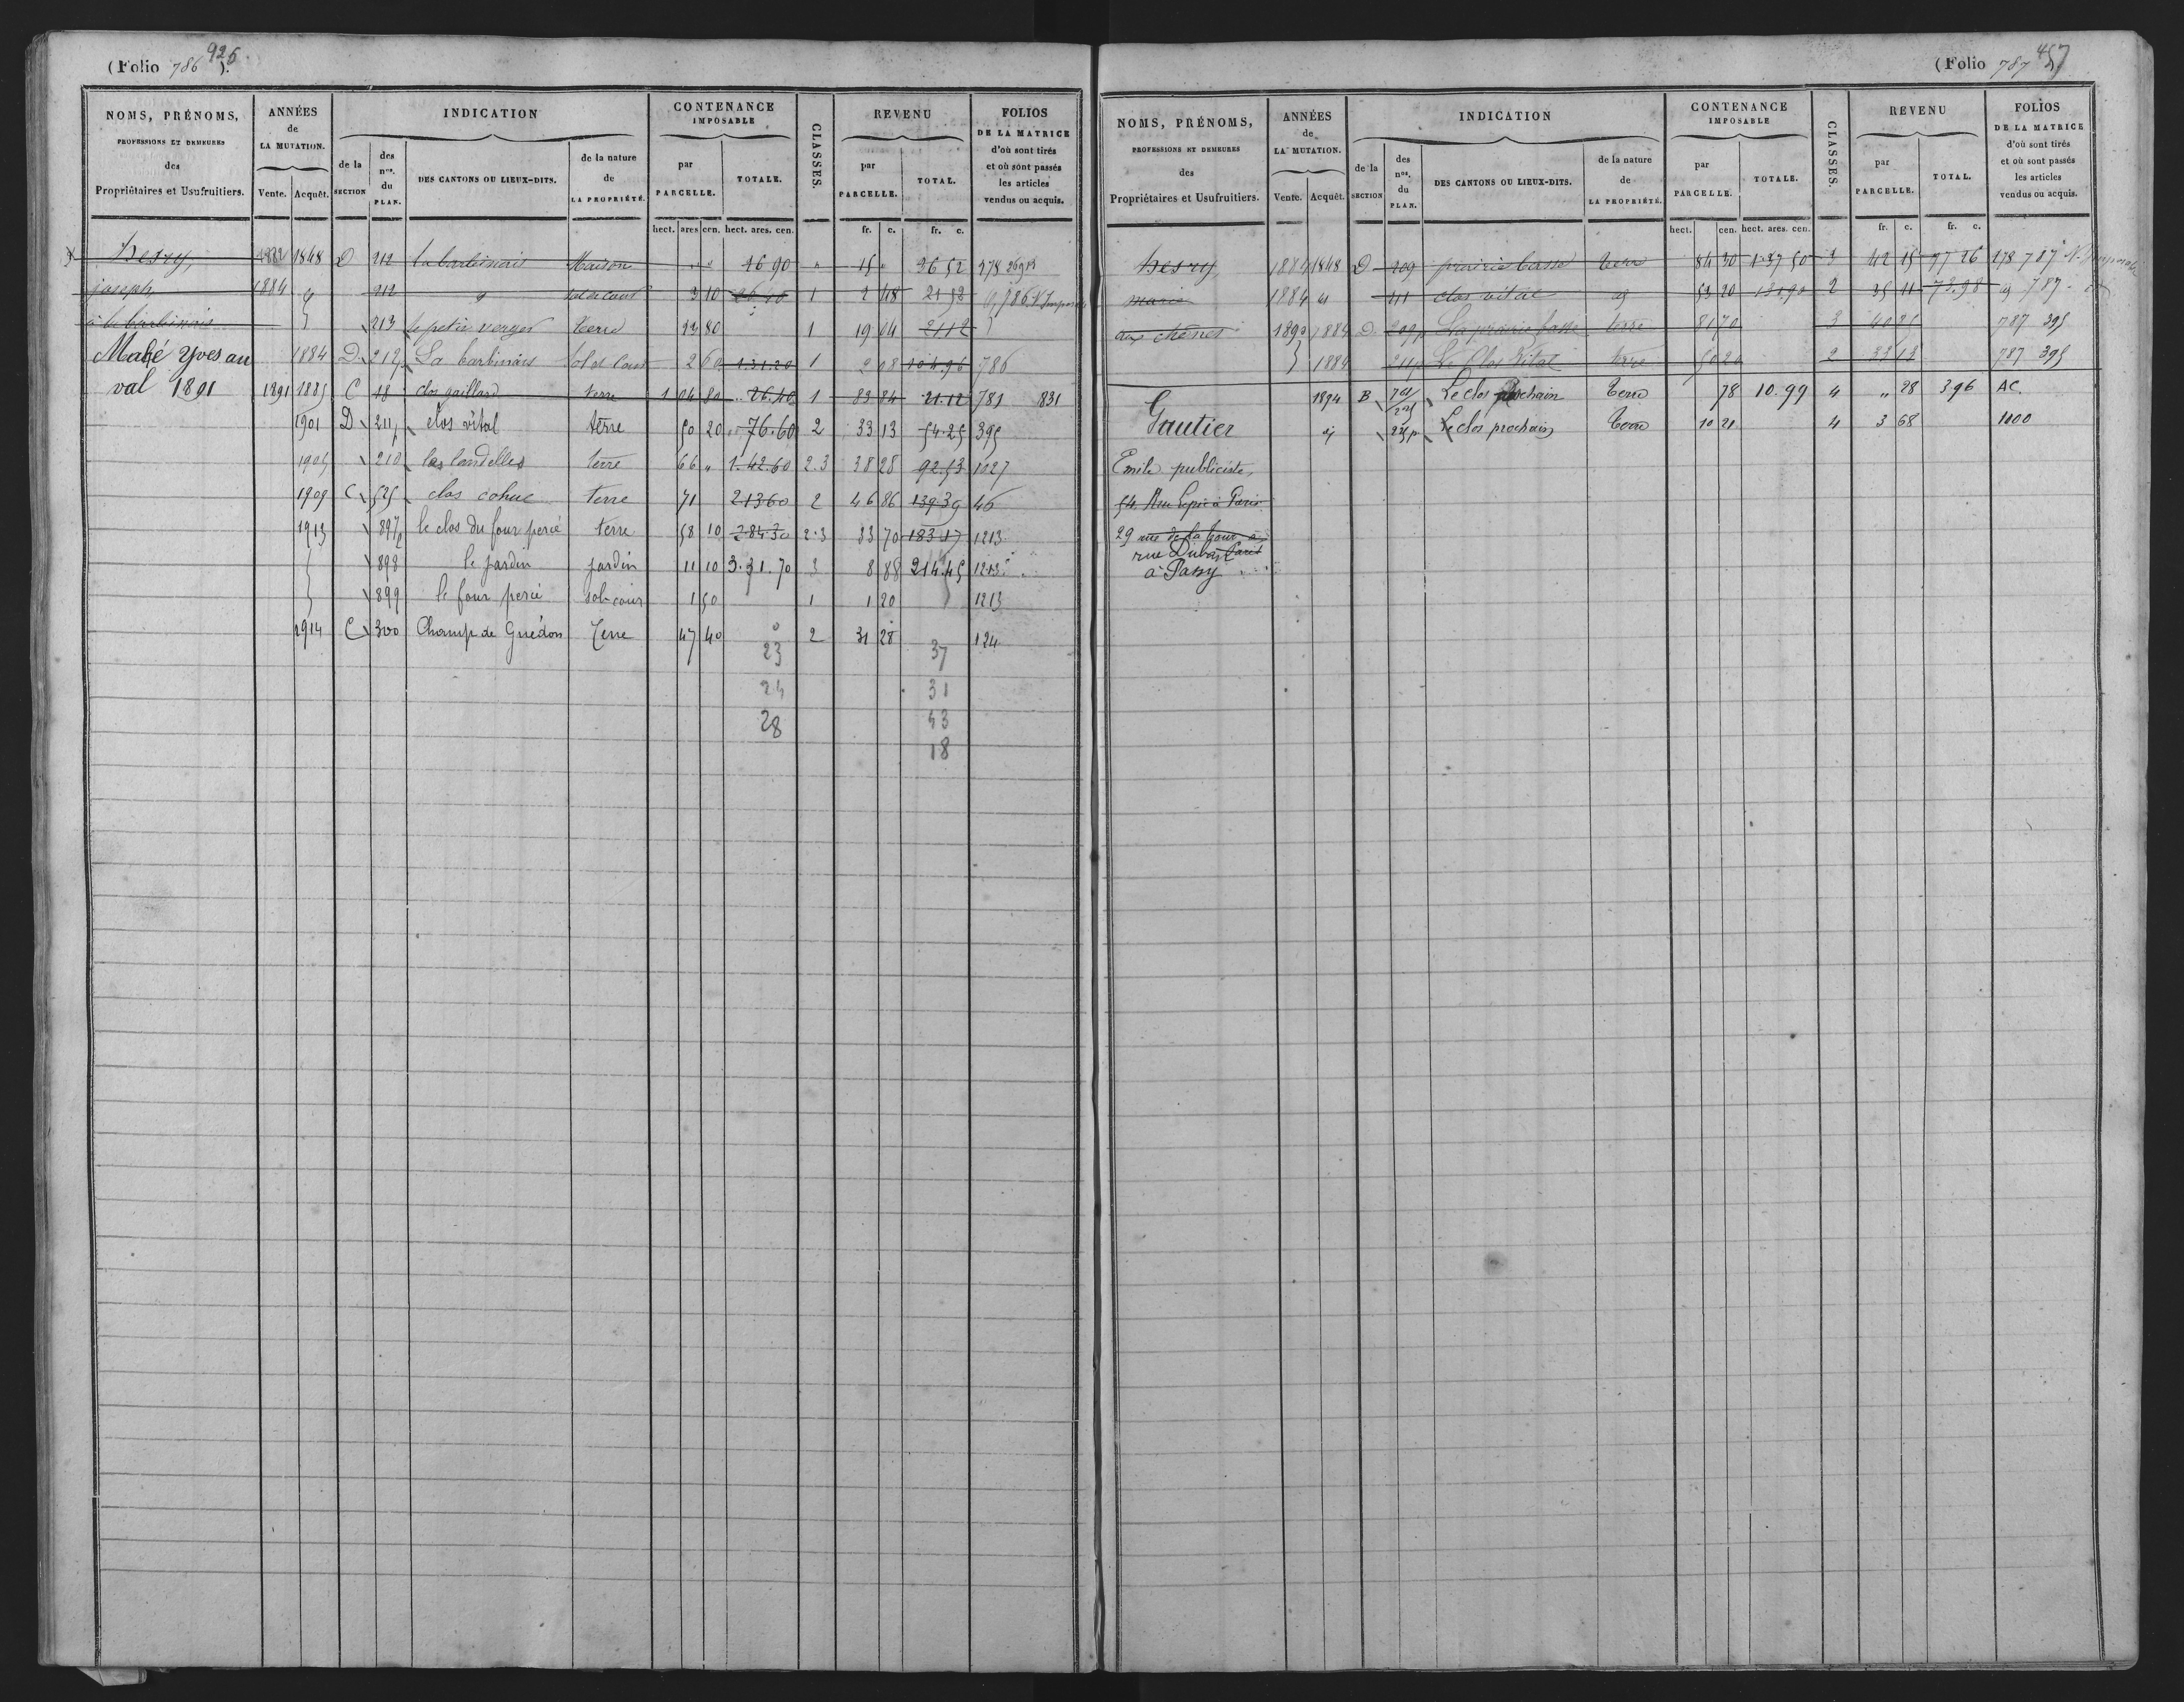 (Folio 786 926).
NOMS, PRÉNOMS, PROFESSIONS ET DEMEURES des Propriétaires et Usufruitiers. | ANNÉES de LA MUTATION. Vente. Acquêt. | INDICATION de la SECTION | des nos. du PLAN. | DES CANTONS OU LIEUX-DITS. | de la nature de LA PROPRIÉTÉ. | CONTENANCE IMPOSABLE par PARCELLE. TOTALE. | CLASSES. | REVENU par PARCELLE. TOTAL. | FOLIOS DE LA MATRICE d'où sont tirés et où sont passés les articles vendus ou acquis.
hect. ares cen. hect. ares. cen. fr. c. fr. c.
hesry, 1882 1848 D 212 la barbinais Maison " " 26 90 " 15 " 36 52 278
joseph, 1884 212 sol et cour 3 10 1 2 48 21 52 786
à la barbinais 213 le petit verger terre 23 80 1 19 04 21 12
Mahé Yves au 1884 D 212p La barbinais Sol et Cour 2 60 1.31.20 1 2 08 104.96 786
val 1891 1891 1885 C 18 clos gaillard terre 1 04 80 26.40 1 83 84 21.12 781 831
1901 D 211p clos vital terre 50 20 76.60 2 33 13 54.25 395
1905 210 les landelles terre 66 " 1.42.60 2.3 38 28 92.53 1027
1909 C 525 clos cohue terre 71 2 13 60 2 46 86 139 39 46
1913 897p le clos du four percé terre 58 10 2.84.30 2.3 33 70 183.17 1213
898 le jardin jardin 11 10 3.31.70 3 8 88 214.45 1213
899 le four percé sol-cour 1 50 1 1 20 1213
1914 C 300 Champ de Guédon Terre 47 40 2 31 28 124
23 37
24 31
28 43
18
(Folio 787 457).
NOMS, PRÉNOMS, PROFESSIONS ET DEMEURES des Propriétaires et Usufruitiers. | ANNÉES de LA MUTATION. Vente. Acquêt. | INDICATION de la SECTION | des nos. du PLAN. | DES CANTONS OU LIEUX-DITS. | de la nature de LA PROPRIÉTÉ. | CONTENANCE IMPOSABLE par PARCELLE. TOTALE. | CLASSES. | REVENU par PARCELLE. TOTAL. | FOLIOS DE LA MATRICE d'où sont tirés et où sont passés les articles vendus ou acquis.
hect. cen. hect. ares. cen. fr. c. fr. c.
hesry 1884 1848 D 209 prairie basse terre 84 30 1 37 50 3 42 15 77 26 278 787
marie 1884 211 clos vital 53 20 1 31.90 2 35 11 73.98 787
aux chênes 1890 1884 D 209p La prairie basse terre 81 70 3 40 85 787 395
1884 211p Le Clos Vital terre 50 20 2 33 13 787 395
Gautier 1894 B Le clos prochain Terre 78 10.99 4 " 28 3.96 AC.
Le clos prochain Terre 10 21 4 3 68 1000
Emile publiciste,
54 Rue Lepic à Paris
29 rue de la Tour à Paris
rue Duban
à Passy